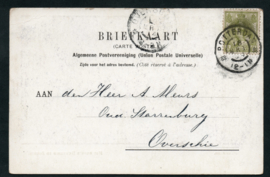 BRIEFKAART
(CARTE POSTALE)
Algemeene Postvereeniging (Union Postale Universelle)
Zijde voor het adres bestemd. (Côté réservé à l'adresse.)
ROTTERDAM
12-1N
AAN den Heer A Meurs
Oud Starrenburg
Overschie